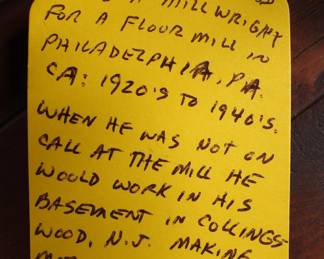 A MILLWRIGHT
FOR A FLOUR MILL IN
PHILADELPHIA, PA.
CA: 1920'S TO 1940'S.
WHEN HE WAS NOT ON
CALL AT THE MILL HE
WOULD WORK IN HIS
BASEMENT IN COLLINGS
WOOD, N.J. MAKING